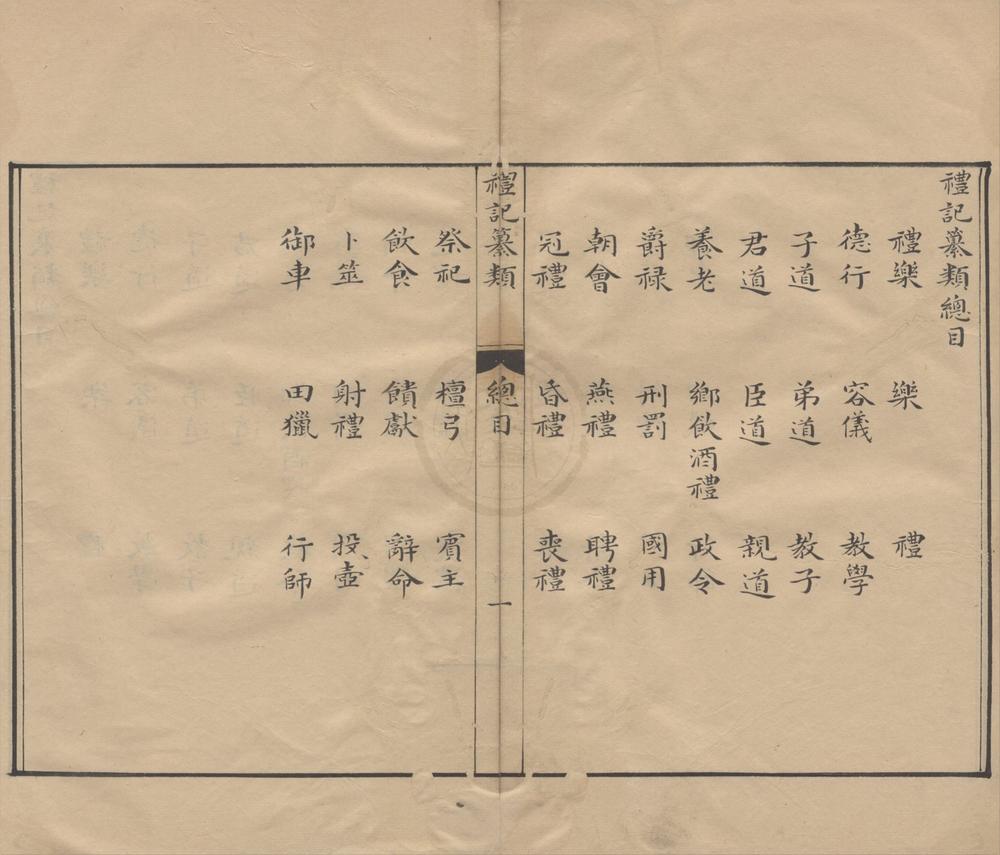 禮記纂類總目
禮樂 樂 禮
德行 容儀 教學
子道 弟道 教子
君道 臣道 親道
養老 鄉飲酒禮 政令
爵禄 刑罰 國用
朝會 燕禮 聘禮
冠禮 昏禮 喪禮
禮記纂類 總目 一
祭祀 檀弓 賓主
飲食 饋獻 辭命
卜筮 射禮 投壺
御車 田獵 行師